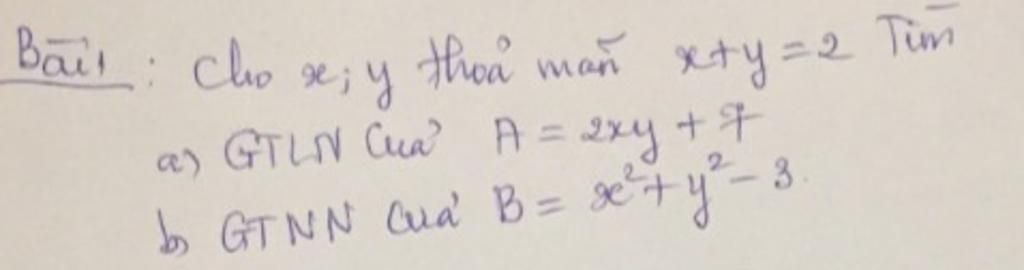 Bài 1: Cho x; y thoả mãn x+y=2 Tìm
a) GTLN Của A = 2xy + 7
b) GTNN Của B = x²+y²-3.